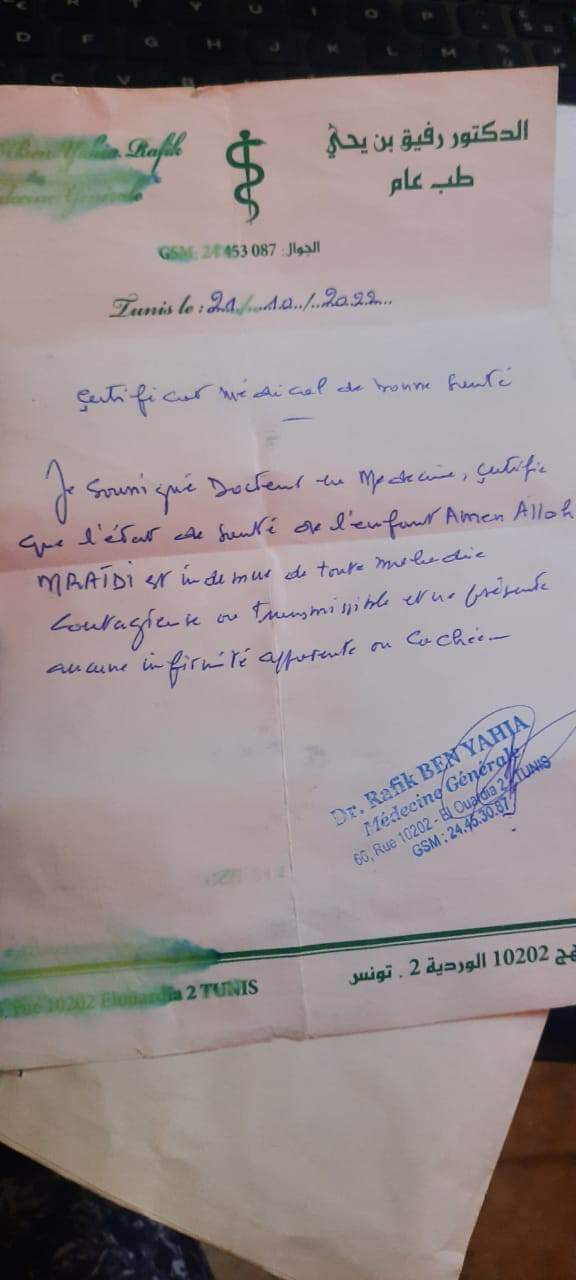 Ben Yahia Rafik
الدكتور رفيق بن يحي
Médecine Générale
طب عام
GSM: 24 453 087 الجوال:
Tunis le : 21/10/2022
Certificat médical de bonne santé
Je soussigné Docteur en Médecine, certifie
que l'état de santé de l'enfant Amen Allah
MRAÏDI est indemne de toute maladie
contagieuse ou transmissible et ne présente
aucune infirmité apparente ou cachée
Dr. Rafik BEN YAHIA
Médecine Générale
66, Rue 10202 - El Ouardia 2 TUNIS
GSM : 24.45.30.87
rue 10202 Elouardia 2 TUNIS
نهج 10202 الوردية 2 . تونس